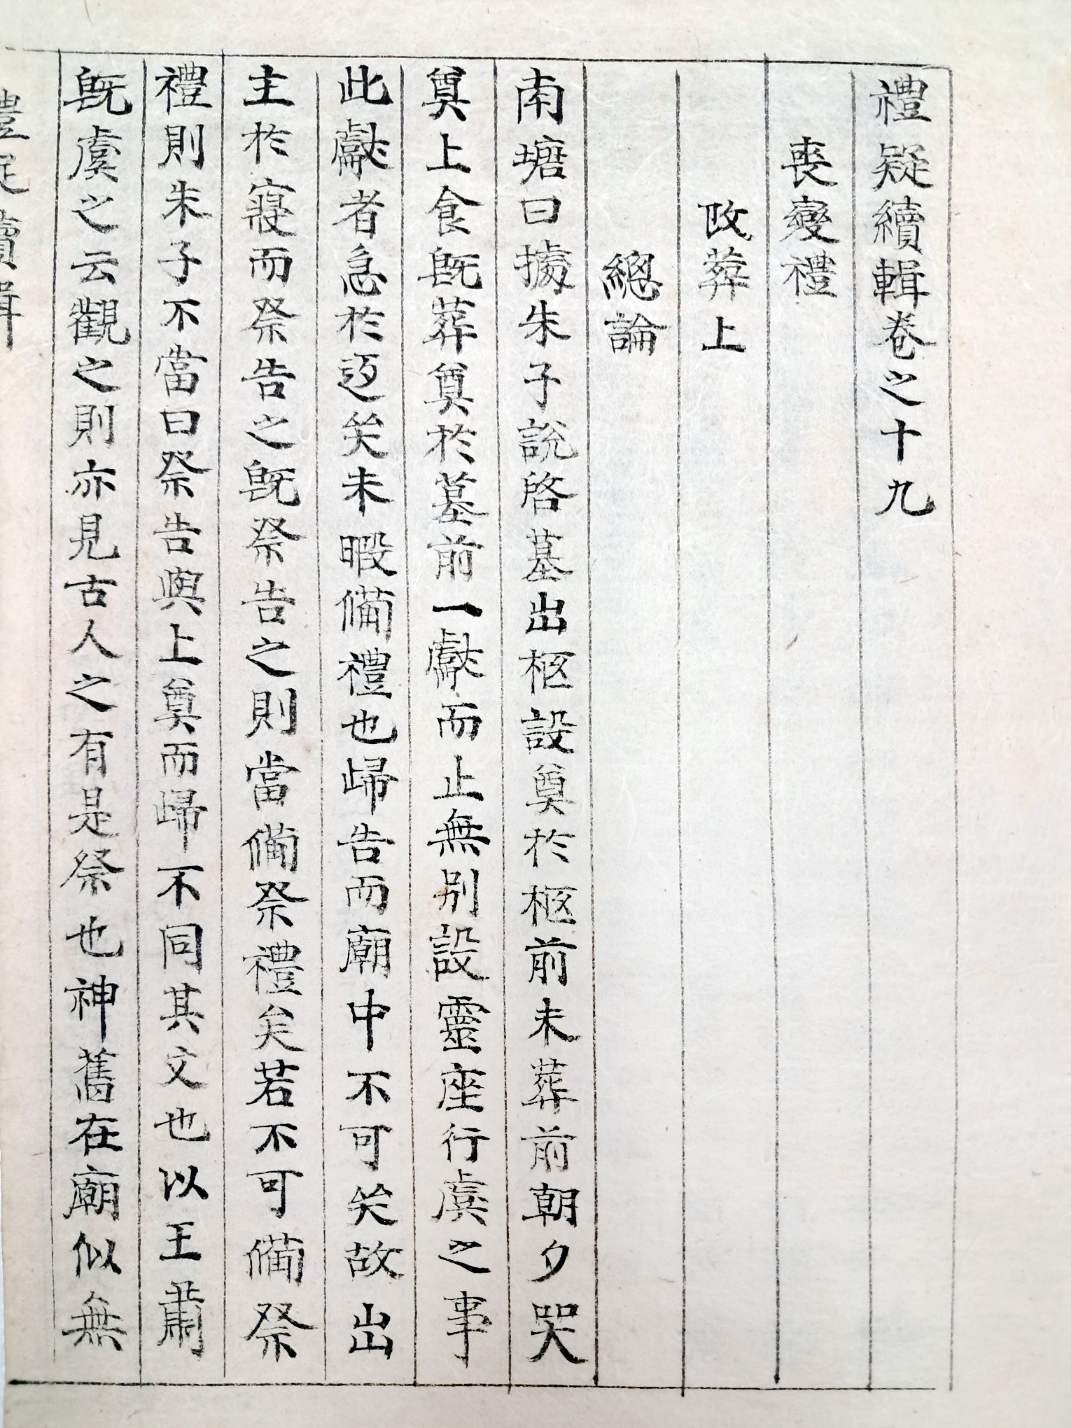 禮疑續輯卷之十九
喪變禮
改葬上
總論
南塘曰據朱子說啓墓出柩設奠於柩前未葬前朝夕哭
奠上食旣葬奠於墓前一獻而止無別設靈座行虞之事
此獻者急於返矣未暇備禮也歸告而廟中不可矣故出
主於寢而祭告之旣祭告之則當備祭禮矣若不可備祭
禮則朱子不當曰祭告與上奠而歸不同其文也以王肅
旣虞之云觀之則亦見古人之有是祭也神舊在廟似無
禮疑續輯